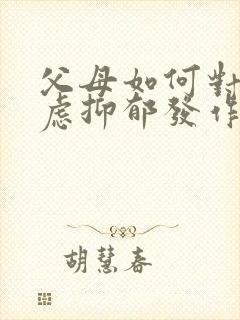 父母如何對
慮抑郁發作
胡慧春